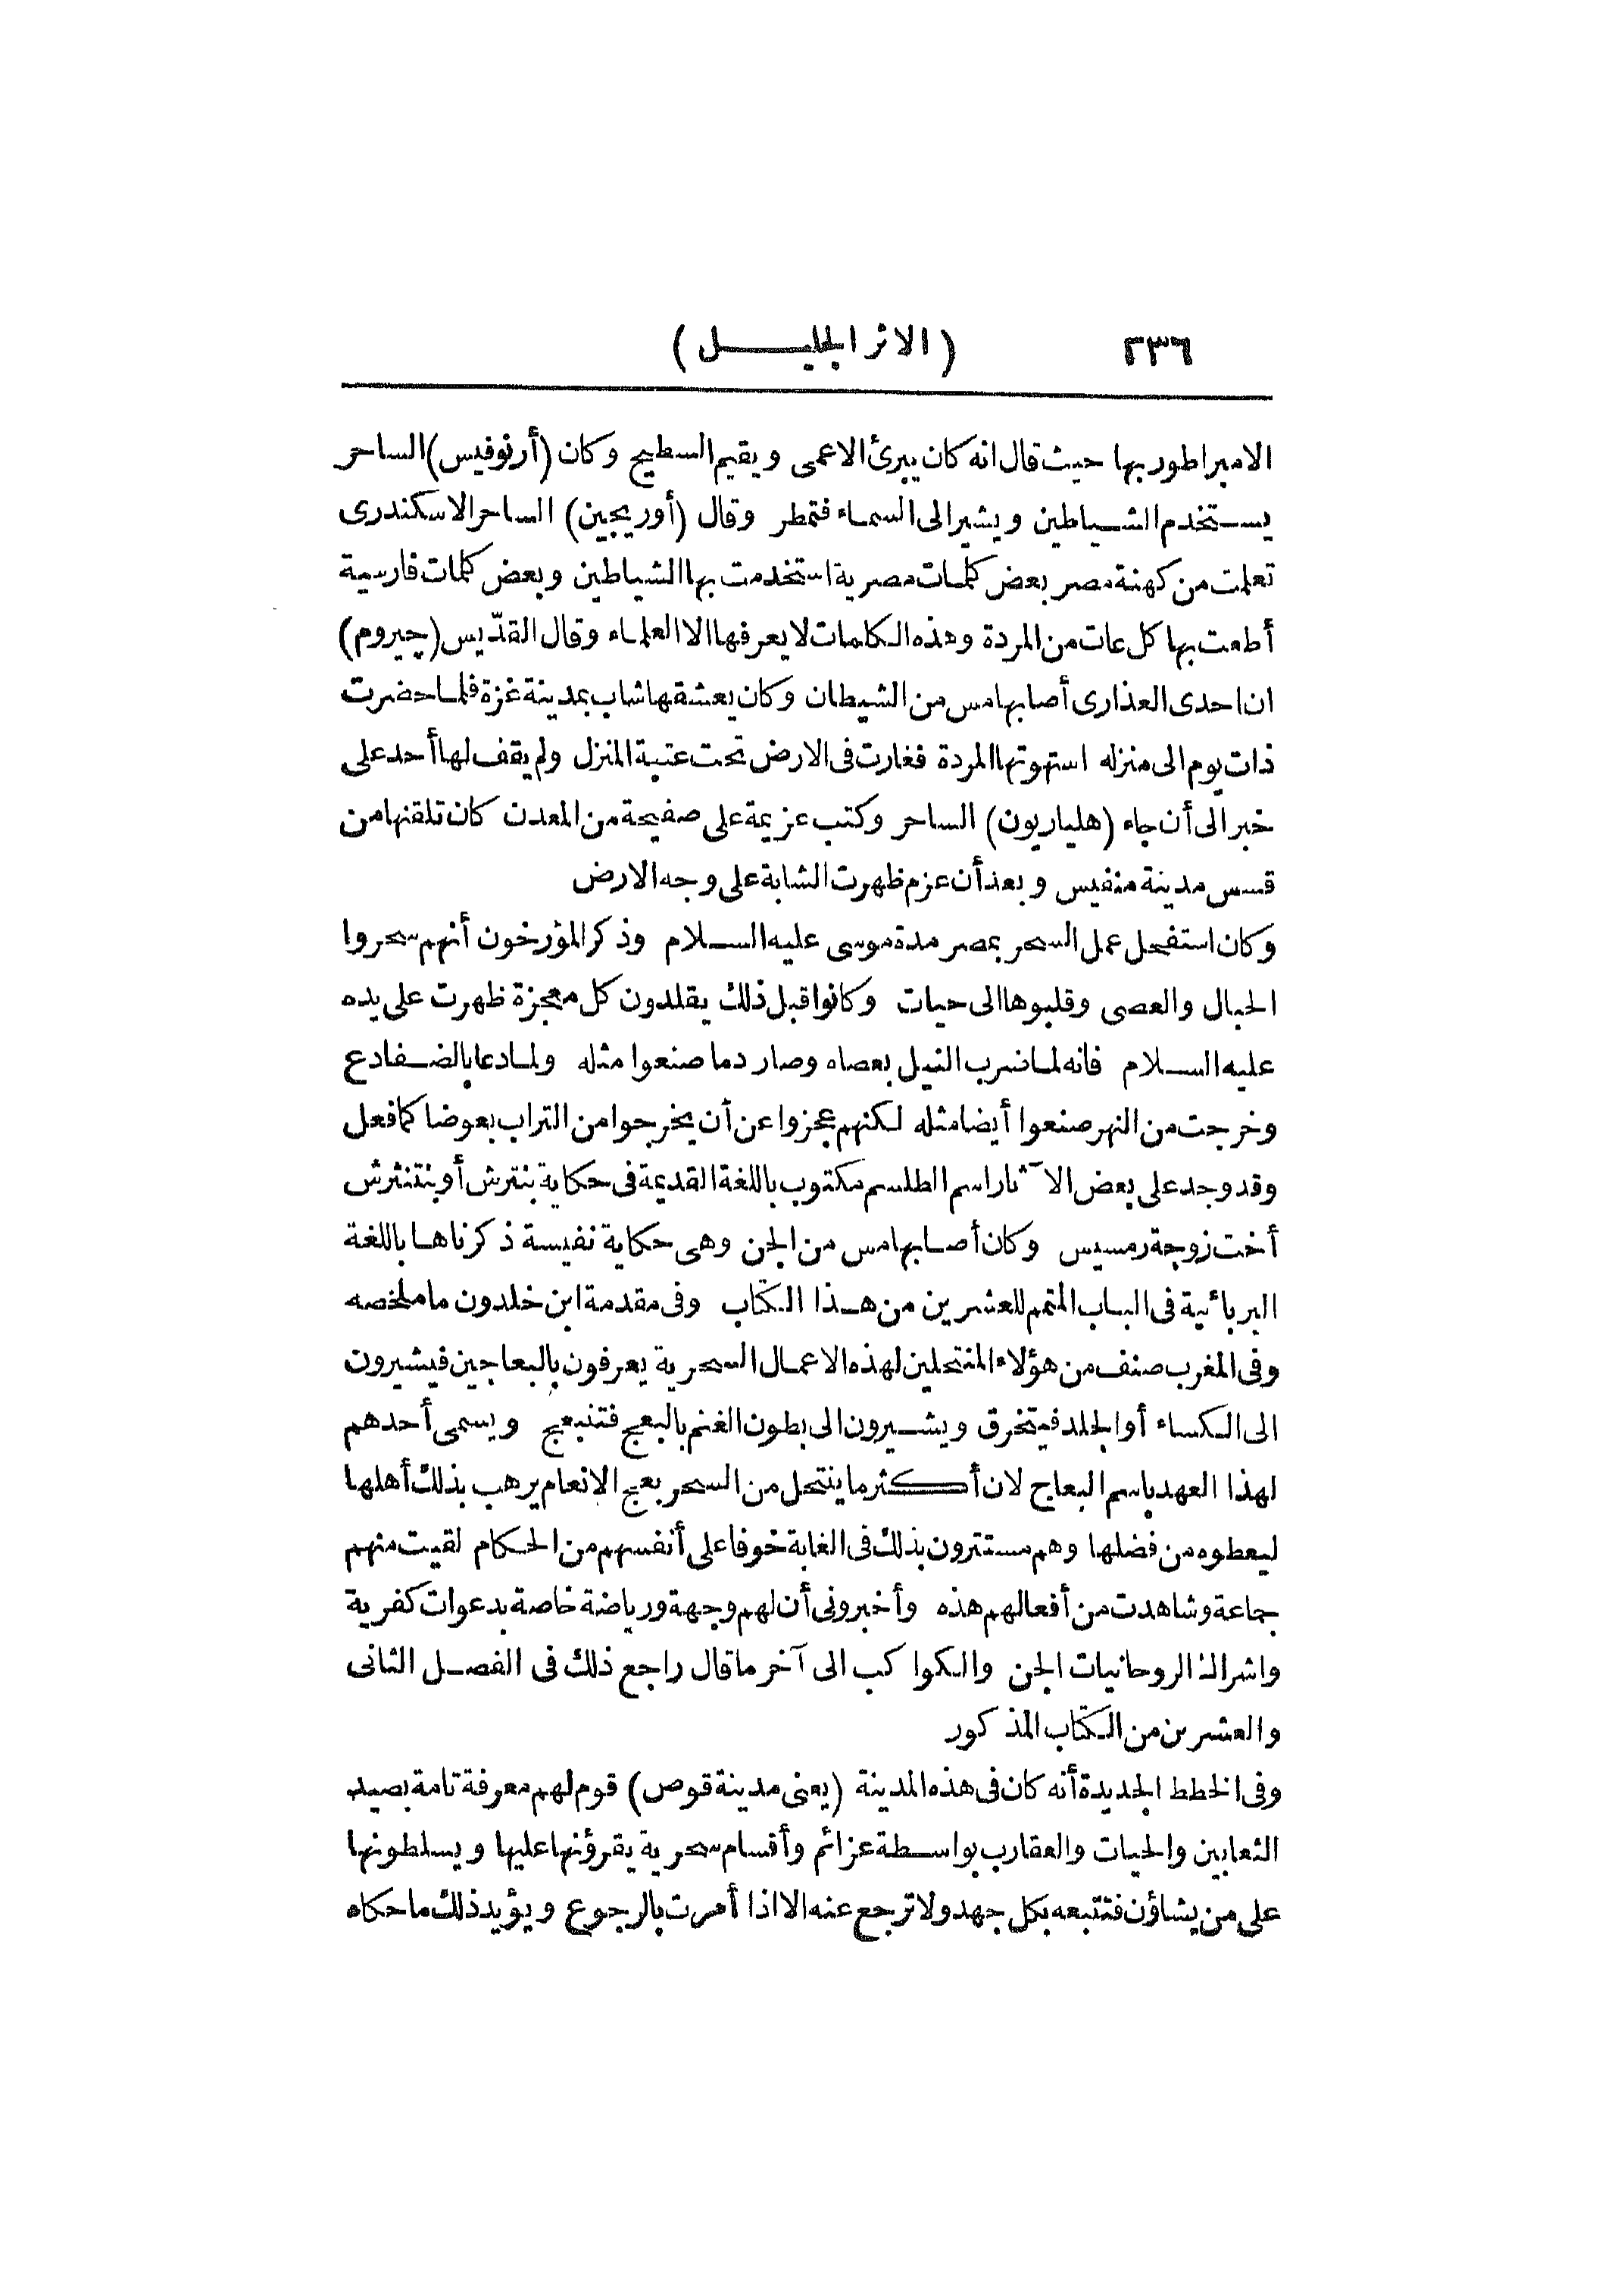 ٢٣٦ (الاثر الجليل)
الامبراطور بها حيث قال انه كان يبرئ الاعمى ويقيم السطيح وكان (أرنوفيس) الساحر
يستخدم الشياطين ويشير الى السماء فتمطر وقال (أوريجين) الساحر الاسكندرى
تعلمت من كهنة مصر بعض كلمات مصرية استخدمت بها الشياطين وبعض كلمات فارسية
أطعت بها كل عات من المردة وهذه الكامات لا يعرفها الا العلماء وقال القدّيس (چيروم)
ان احدى العذارى أصابها مس من الشيطان وكان يعشقها شاب بمدينة غزة فلما حضرت
ذات يوم الى منزله استهوتها المردة فغارت فى الارض تحت عتبة المنزل ولم يقف لها أحد على
خبر الى أن جاء (هلياريون) الساحر وكتب عزيمة على صفيحة من المعدن كان تلقنها من
قسس مدينة منفيس وبعد أن عزم ظهرت الشابة على وجه الارض
وكان استفحل عمل السحر بمصر مدة موسى عليه السلام وذكر المؤرخون أنهم سحروا
الحبال والعصى وقلبوها الى حيات وكانوا قبل ذلك يقلدون كل معجزة ظهرت على يده
عليه السلام فانه لما ضرب النيل بعصاه وصار دما صنعوا مثله ولما دعا بالضفادع
وخرجت من النهر صنعوا أيضا مثله لكنهم عجزوا عن أن يخرجوا من التراب بعوضا كما فعل
وقد وجد على بعض الآثار اسم الطلسم مكتوب باللغة القديمة فى حكاية بنترش أو بنتنثرش
أخت زوجة رمسيس وكان أصابها مس من الجن وهى حكاية نفيسة ذكرناها باللغة
البربائية فى الباب المتمم للعشرين من هذا الكتاب وفى مقدمة ابن خلدون ما ملخصه
وفى المغرب صنف من هؤلاء المنتحلين لهذه الاعمال السحرية يعرفون بالبعاجين فيشيرون
الى الكساء أو الجلد فيتخرق ويشيرون الى بطون الغنم بالبعج فتنبعج ويسمى أحدهم
لهذا العهد باسم البعاج لان أكثر ما ينتحل من السحر بعج الانعام يرهب بذلك أهلها
ليعطوه من فضلها وهم مستترون بذلك فى الغابة خوفا على أنفسهم من الحكام لقيت منهم
جماعة وشاهدت من أفعالهم هذه وأخبرونى أن لهم وجهة ورياضة خاصة بدعوات كفرية
واشراك الروحانيات الجن والكواكب الى آخر ما قال راجع ذلك فى الفصل الثانى
والعشرين من الكتاب المذكور
وفى الخطط الجديدة أنه كان فى هذه المدينة (يعنى مدينة قوص) قوم لهم معرفة تامة بصيد
الثعابين والحيات والعقارب بواسطة عزائم وأقسام سحرية يقرؤنها عليها ويسلطونها
على من يشاؤن فتتبعه بكل جهد ولا ترجع عنه الا اذا أمرت بالرجوع ويؤيد ذلك ما حكاه